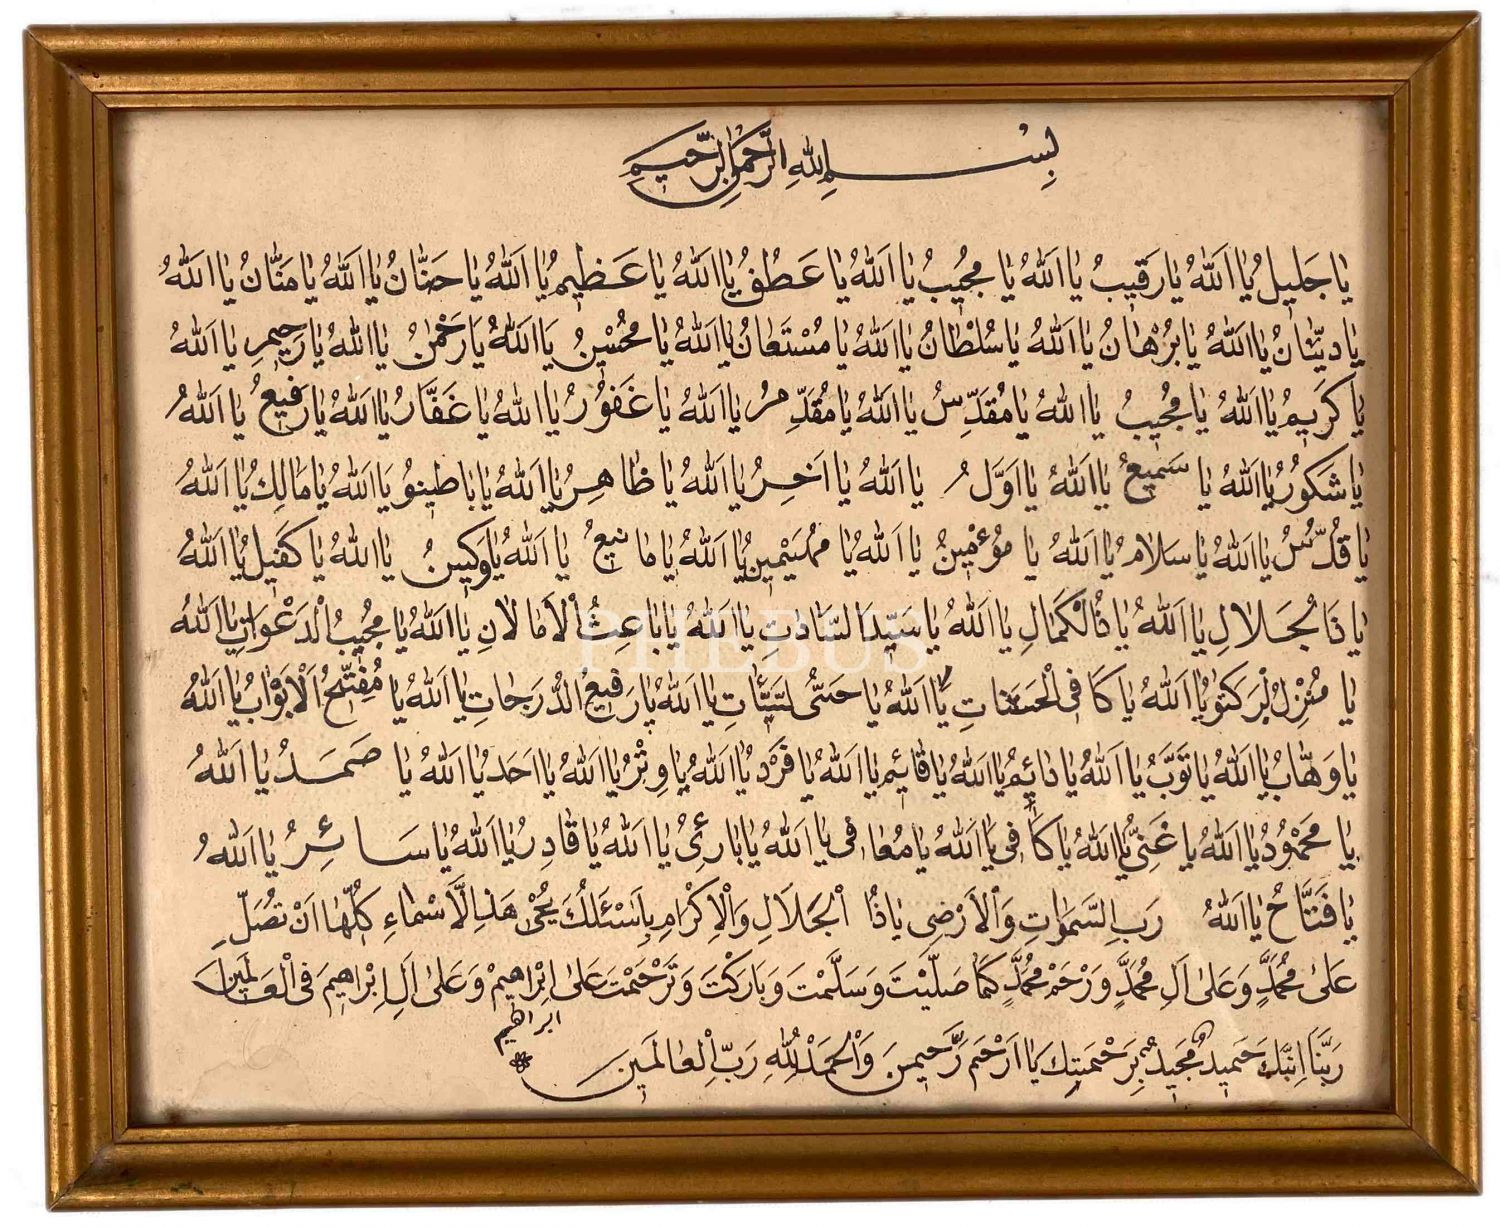 بِسْمِ اللهِ الرَّحْمٰنِ الرَّحِيمِ
يَا جَلِيلُ يَا اَللهُ يَا رَقِيبُ يَا اَللهُ يَا مُجِيبُ يَا اَللهُ يَا عَطُفُ يَا اَللهُ يَا عَظِيمُ يَا اَللهُ يَا حَنَّانُ يَا اَللهُ يَا مَنَّانُ يَا اَللهُ
يَا دَيَّانُ يَا اَللهُ يَا بُرْهَانُ يَا اَللهُ يَا سُلْطَانُ يَا اَللهُ يَا مُسْتَعَانُ يَا اَللهُ يَا مُحْسِنُ يَا اَللهُ يَا رَحْمٰنُ يَا اَللهُ يَا رَحِيمِ يَا اَللهُ
يَا كَرِيمُ يَا اَللهُ يَا مُجِيبُ يَا اَللهُ يَا مُقَدِّسُ يَا اَللهُ يَا مُقَدِّمُ يَا اَللهُ يَا غَفُورُ يَا اَللهُ يَا غَفَّارُ يَا اَللهُ يَا رَفِيعُ يَا اَللهُ
يَا شَكُورُ يَا اَللهُ يَا سَمِيعُ يَا اَللهُ يَا اَوَّلُ يَا اَللهُ يَا اَخِرُ يَا اَللهُ يَا ظَاهِرُ يَا اَللهُ يَا بَاطِينُو يَا اَللهُ يَا مَالِكُ يَا اَللهُ
يَا قُدُّسُ يَا اَللهُ يَا سَلَامُ يَا اَللهُ يَا مُؤْمِنُ يَا اَللهُ يَا مُهَيْمِينُ يَا اَللهُ يَا مَانِيعُ يَا اَللهُ يَا وَكِيسُنُ يَا اَللهُ يَا كَفِيلُ يَا اَللهُ
يَا ذَا لْجَلَالِ يَا اَللهُ يَا ذَالْكَمَالِ يَا اَللهُ يَا سَيِّدَ السَّادَتِ يَا اَللهُ يَا بَاعِثُ الْاَمَالَانِ يَا اَللهُ يَا مُجِيبُ الْدَعْوَاتِ يَا اَللهُ
يَا مُنْزِلُ بَرَكَتُو يَا اَللهُ يَا كَافِي الْحَسَنَاتِ يَا اَللهُ يَا السَّيِّئَاتِ يَا اَللهُ يَا رَفِيعُ الدَّرَجَاتِ يَا اَللهُ يَا مُفَتِّحُ الْاَبْوَابُ يَا اَللهُ
يَا وَهَّابُ يَا اَللهُ يَا تَوَّبُ يَا اَللهُ يَا دَائِمُ يَا اَللهُ يَا قَائِمِ يَا اَللهُ يَا فَرْدُ يَا اَللهُ يَا وِتْرُ يَا اَللهُ يَا اَحَدُ يَا اَللهُ يَا صَمَدُ يَا اَللهُ
يَا مَحْمُودُ يَا اَللهُ يَا غَنِيُّ يَا اَللهُ يَا كَافِي يَا اَللهُ يَا مُعَافِي يَا اَللهُ يَا بَارِئُ يَا اَللهُ يَا قَادِرُ يَا اَللهُ يَا سَائِرُ يَا اَللهُ
يَا فَتَّاحُ يَا اَللهُ رَبِ السَّمٰوَاتِ وَالْاَرْضِ يَاذَا اْلجَلَالِ وَالْاِكْرَامِ بِاَسْئَلُكَ هٰذِ الْاَسْمَاءِ كُلِّهَا اَنْ تُصَلِّ
عَلٰى مُحَمَّدٍ وَعَلٰى اَلِ مُحَمَّدٍ وَرْحَمْ مُحَمَّدٍ كَمَا صَلَّيْتَ وَسَلَّمْتَ وَبَارَكْتَ وَتَرَحَّمْتَ عَلٰى اِبْرَاهِيمْ وَعَلٰى اَلِ اِبْرَاهِيمَ فِى الْعَالَمِينَ
رَبَّنَا اِنَّكَ حَمِيدٌ مَجِيدٌ بِرَحْمَتِكَ يَا اَرْحَمَ رَّحِيمِنَ وَالْحَمْدُ لِلّٰهِ رَبِّ الْعَالَمِينَ
ابراهيم
PHEBUS